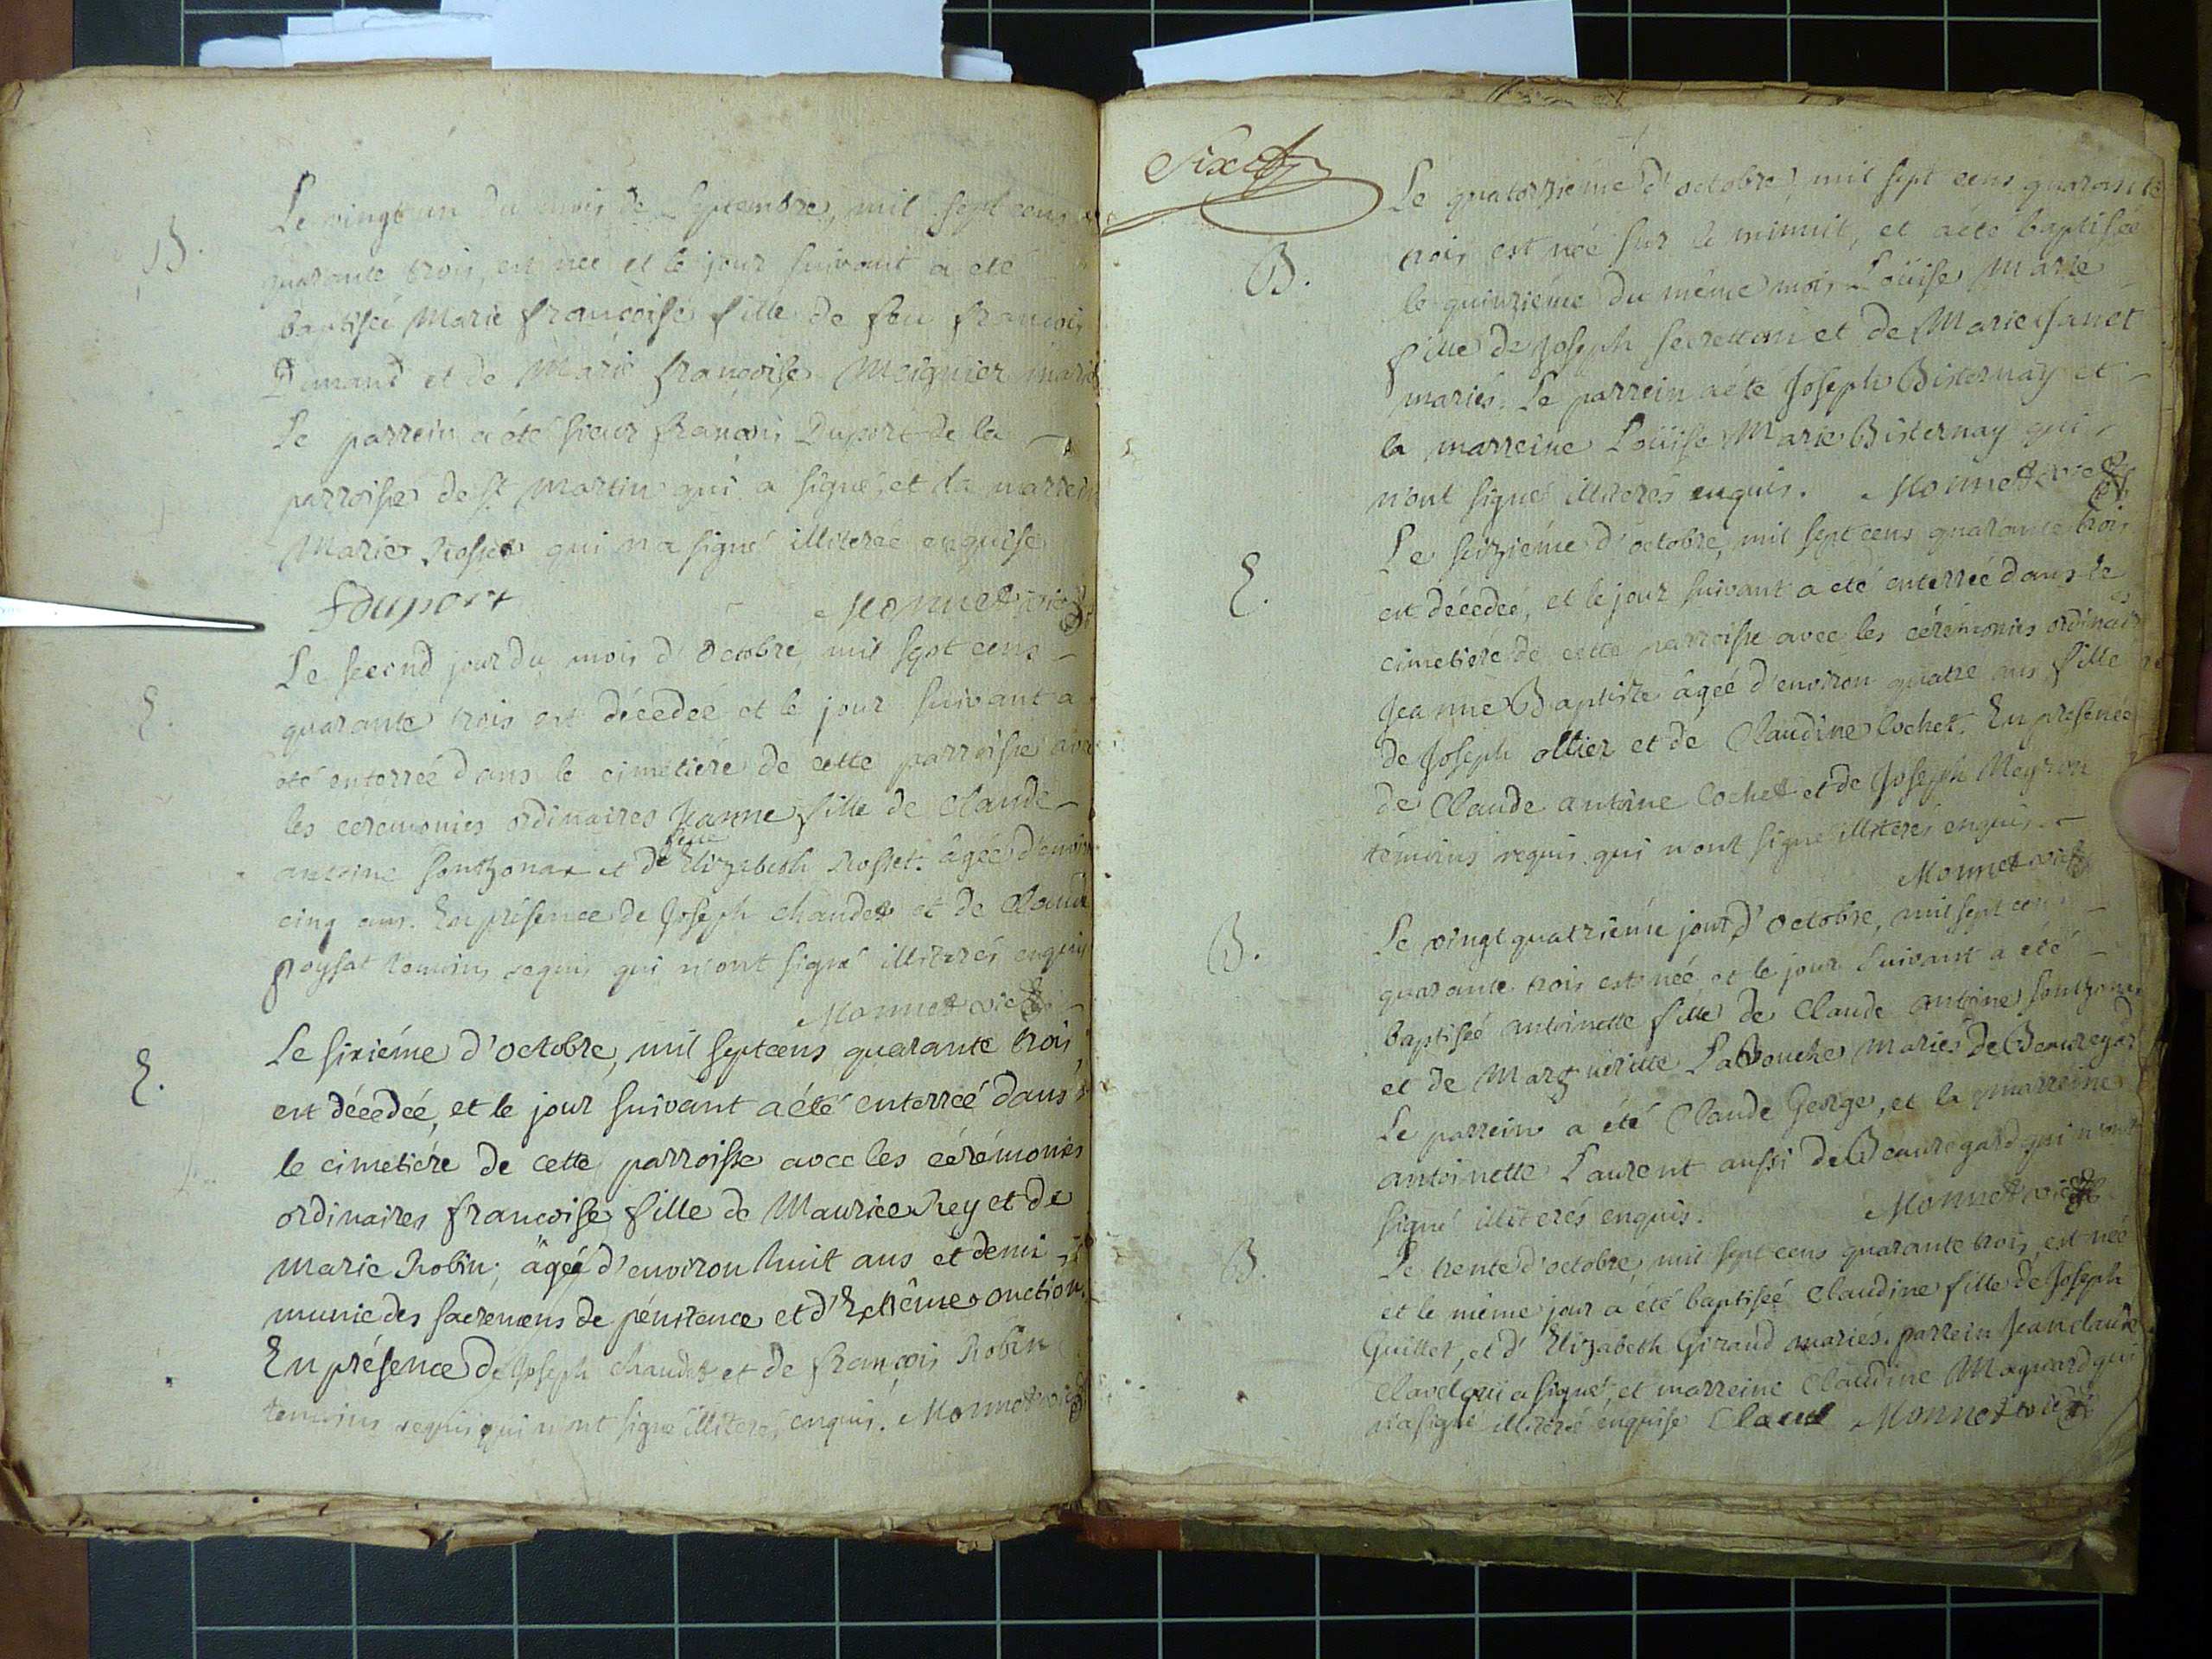 B.
Le vingt un du mois de Septembre, mil sept cens
quarante trois, est née et le jour suivant a été
baptisée Marie françoise fille de feu françois
et de Marie françoise Meignier mariés
Le parrein a été sieur françois Duport de la
parroisse de St Martin qui a signé, et la marrein
Marie Rosset qui n'a signé illiterée enquise
fduport Monnet vic
E.
Le second jour du mois d'Octobre, mil sept cens
quarante trois est décedeé et le jour suivant a
été enterreé dans le cimetiére de cette parroisse avec
les cérémonies ordinaires Jeanne fille de Claude
antoine fontzonax et de feüe Elizabeth Rosset. âgeé d'environ
cinq ans. En présence de Joseph Chaudet et de Claude
poysat temoins requis qui n'ont signé illiterés enquis
Monnet vic
E.
Le sixiéme d'octobre, mil sept cens quarante trois
est décedeé, et le jour suivant a été enterreé dans
le cimetiére de cette parroisse avec les cérémonies
ordinaires françoise fille de Maurice Rey et de
marie Robin; âgeé d'environ huit ans et demi
munie des sacremens de pénitence et d'Extrême onction.
En présence de Joseph Chaudet et de françois Robin
temoins requis qui n'ont signé illiterés enquis. Monnet vic
Sixt
B.
Le quatorziéme d'octobre, mil sept cens quarante
trois est née sur le minuit, et a été baptiseé
le quinziéme du même mois Loüise Marie
fille de Joseph secrettan et de Marie janet
mariés. Le parrein a été Joseph Bisternay et
la marreine Loüise Marie Bisternay qui
n'ont signé illiterés enquis. Monnet vic
E.
Le seiziéme d'octobre, mil sept cens quarante trois
est décedeé, et le jour suivant a été enterreé dans le
cimetiére de cette parroisse avec les cérémonies ordinaires
Jeanne Baptiste âgeé d'environ quatre ans fille
de Joseph ollier et de Claudine Cochet. En présence
de Claude antoine Cochet et de Joseph Meyron
témoins requis qui n'ont signé illiterés enquis
Monnet vic
B.
Le vingt quatriéme jour d'octobre, mil sept cens
quarante trois est née, et le jour suivant a été
baptiseé antoinette fille de Claude antoine fontzonax
et de Margueritte LaBouche mariés de Beauregard
Le parrein a été Claude George, et la marreine
antoinette Laurent aussi de Beauregard qui n'ont
signé illiterés enquis. Monnet vic
B.
Le trente d'octobre, mil sept cens quarante trois, est née
et le même jour a été baptiseé Claudine fille de Joseph
Guillet, et d'Elizabeth Giraud mariés. parrein Jean claude
Clavel qui a signé, et marreine Claudine Maynard qui
n'a signé illiterée enquise Clavel Monnet vic